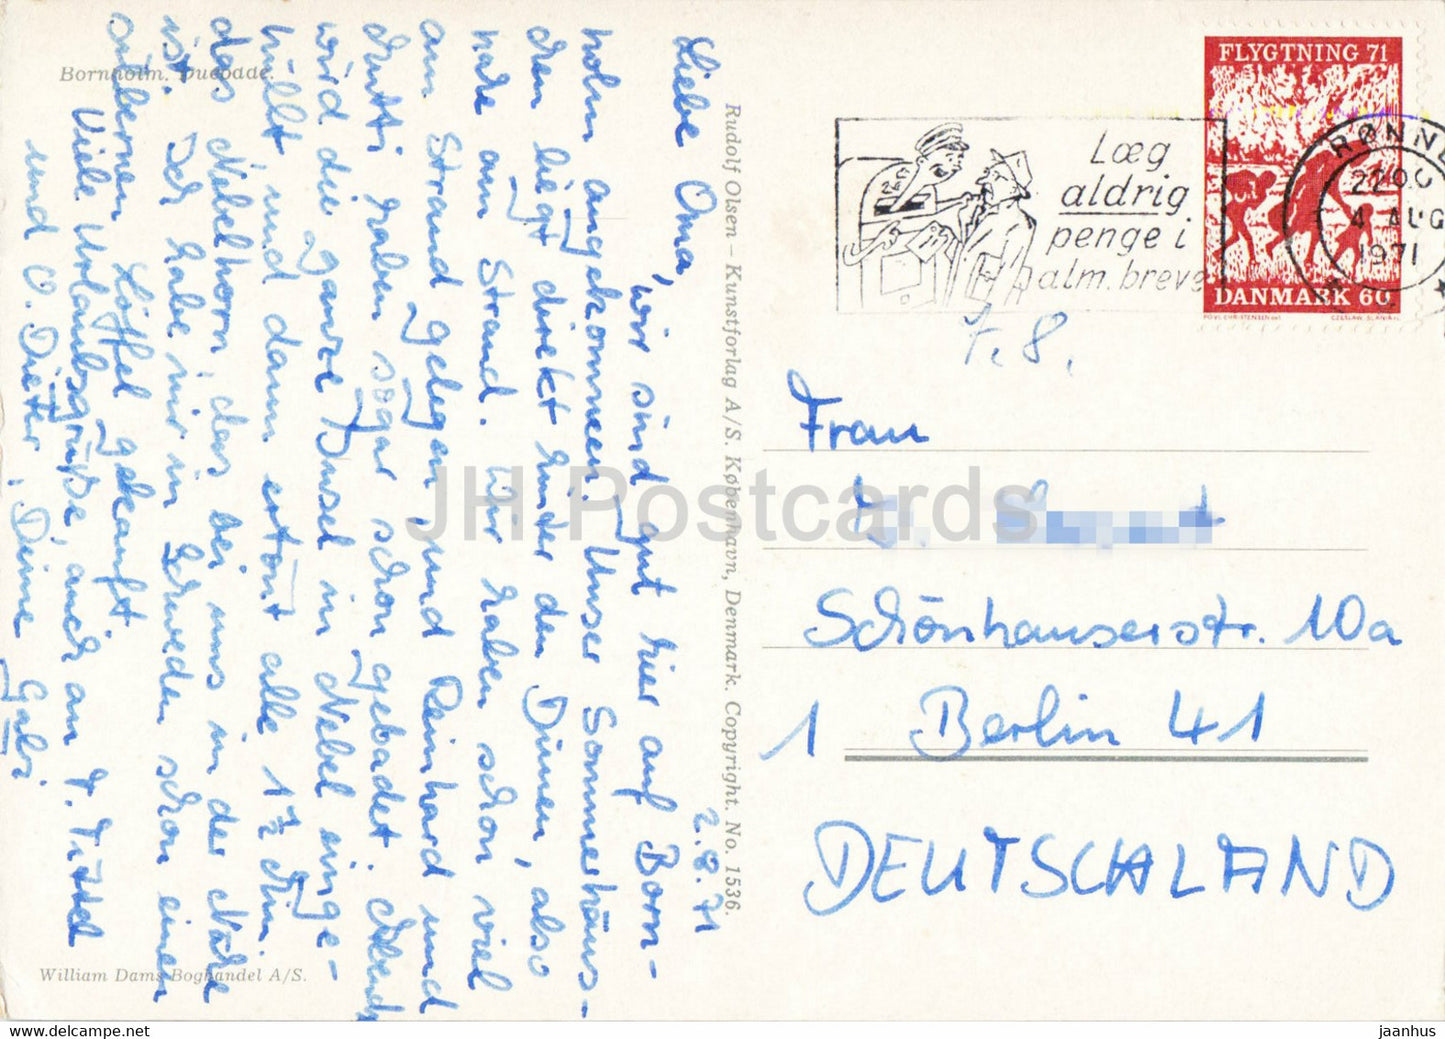 Bornholm. Duebade.
2.8.71
Liebe Oma,
wir sind gut hier auf Born-
holm angekommen. Unser Sommerhäus-
chen liegt direkt hinter den Dünen, also
nahe am Strand. Wir haben schon viel
am Strand gelegen, und Reinhard und
Mutti haben sogar schon gebadet. Abends
wird die ganze Insel in Nebel einge-
hüllt und dann ertönt alle 1½ Min
das Nebelhorn, das bei uns in der Nähe
ist. Ich habe mir in Schweden schon einen
silbernen Löffel gekauft
Viele Urlaubsgrüße, auch an
und O. Dieter, Deine Gabi.
William Dams Boghandel A/S.
Rudolf Olsen – Kunstforlag A/S. København, Denmark. Copyright. No. 1536.
Læg
aldrig
penge i
alm. breve
FLYGTNING 71
DANMARK 60
POVL CHRISTENSEN del.
CZESLAW SLANIA sc.
RØNNE
4 AUG
1971
7.8.
Frau
Schönhauserstr. 10a
1 Berlin 41
DEUTSCHLAND
JH Postcards
www.delcampe.net
jaanhus